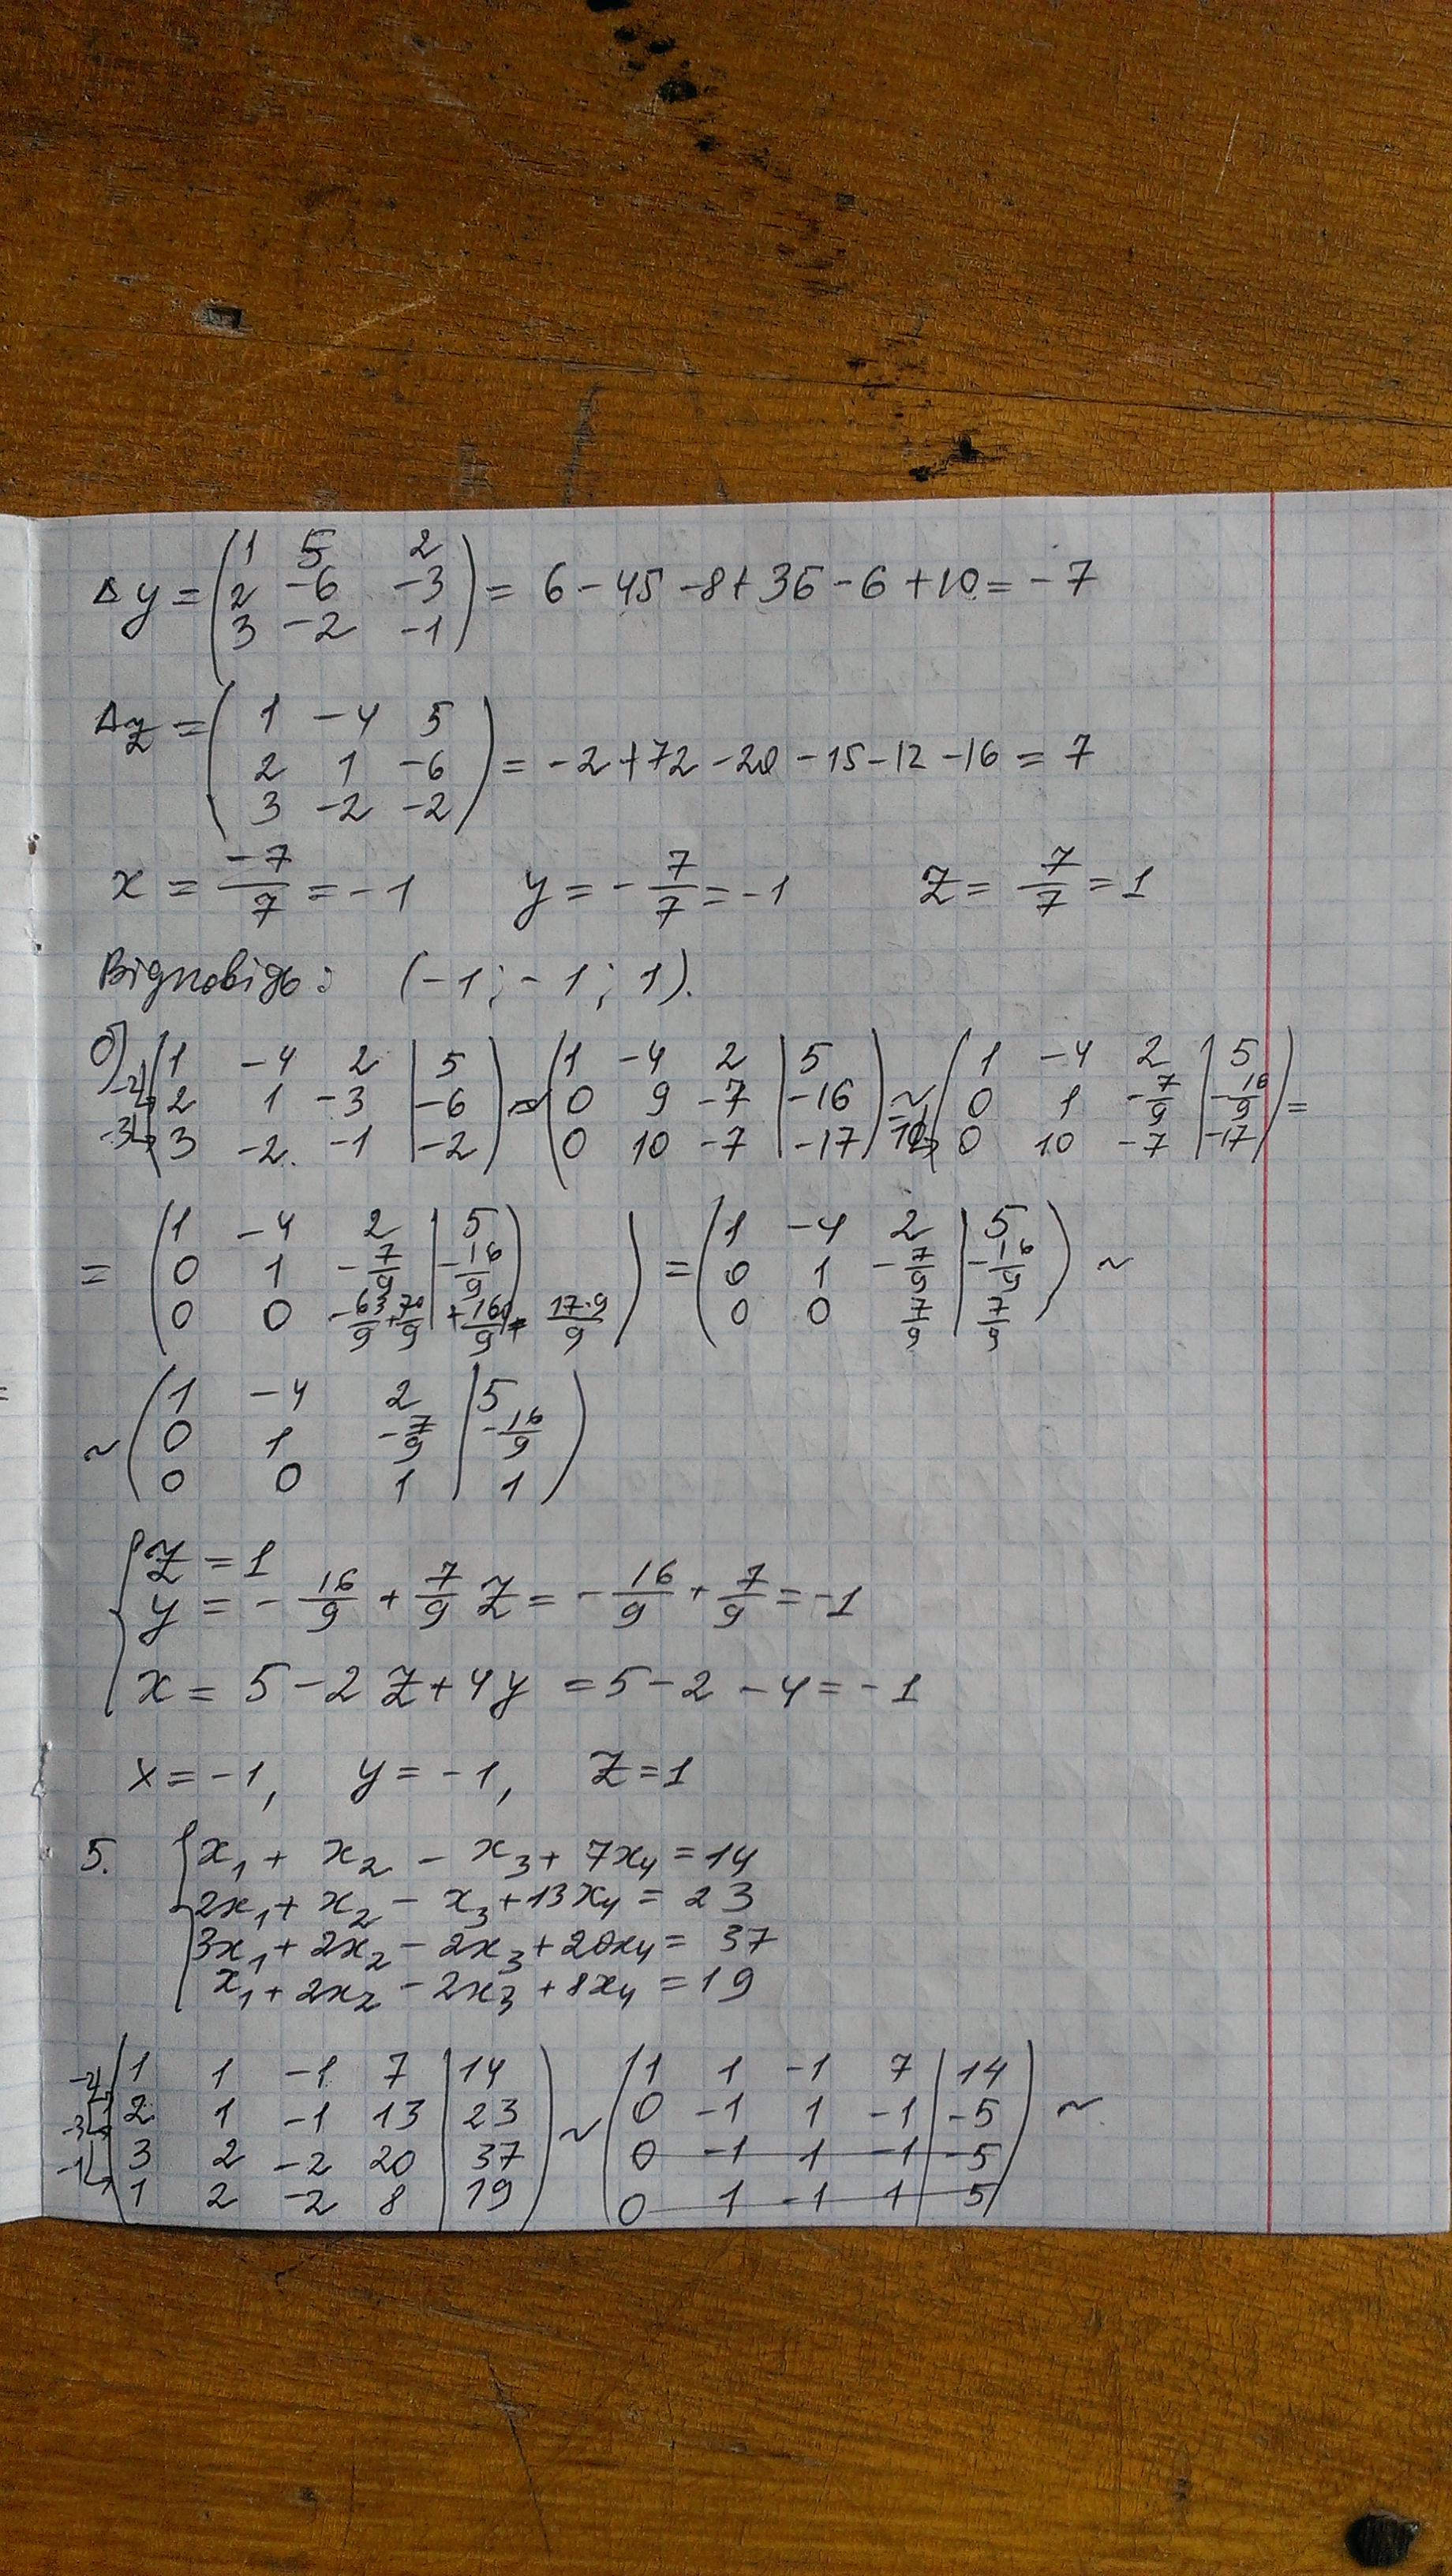 Δy = (1 5 2
2 -6 -3
3 -2 -1) = 6 - 45 - 8 + 36 - 6 + 10 = - 7
Δz = (1 -4 5
2 1 -6
3 -2 -2) = -2 + 72 - 20 - 15 - 12 - 16 = 7
x = -7/7 = -1 y = - 7/7 = -1 z = 7/7 = 1
Відповідь: (-1; -1; 1).
б) -2 -3 (1 -4 2 | 5
2 1 -3 | -6
3 -2 -1 | -2) ~ (1 -4 2 | 5
0 9 -7 | -16
0 10 -7 | -17) ~ -10 (1 -4 2 | 5
0 1 -7/9 | -16/9
0 10 -7 | -17) =
= (1 -4 2 | 5
0 1 -7/9 | -16/9
0 0 -63/9 + 70/9 | +160/9 - 17·9/9) = (1 -4 2 | 5
0 1 -7/9 | -16/9
0 0 7/9 | 7/9) ~
~ (1 -4 2 | 5
0 1 -7/9 | -16/9
0 0 1 | 1)
{ z = 1
y = - 16/9 + 7/9 z = - 16/9 + 7/9 = -1
x = 5 - 2z + 4y = 5 - 2 - 4 = -1
x = -1, y = -1, z = 1
5. { x₁ + x₂ - x₃ + 7x₄ = 14
2x₁ + x₂ - x₃ + 13x₄ = 23
3x₁ + 2x₂ - 2x₃ + 20x₄ = 37
x₁ + 2x₂ - 2x₃ + 8x₄ = 19
-2 -3 -1 (1 1 -1 7 | 14
2 1 -1 13 | 23
3 2 -2 20 | 37
1 2 -2 8 | 19) ~ (1 1 -1 7 | 14
0 -1 1 -1 | -5
0 -1 1 -1 | -5
0 1 -1 1 | 5) ~